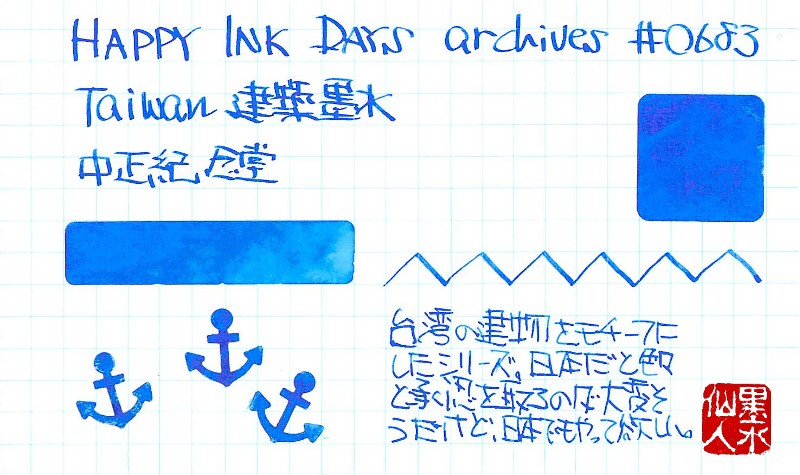 HAPPY INK DAYS archives #0683
Taiwan 建築墨水
中正紀念堂
台湾の建物をモチーフに
したシリーズ。日本だと色々
と承認を取るのが大変そ
うだけど、日本でもやって欲しい。
墨水
仙人